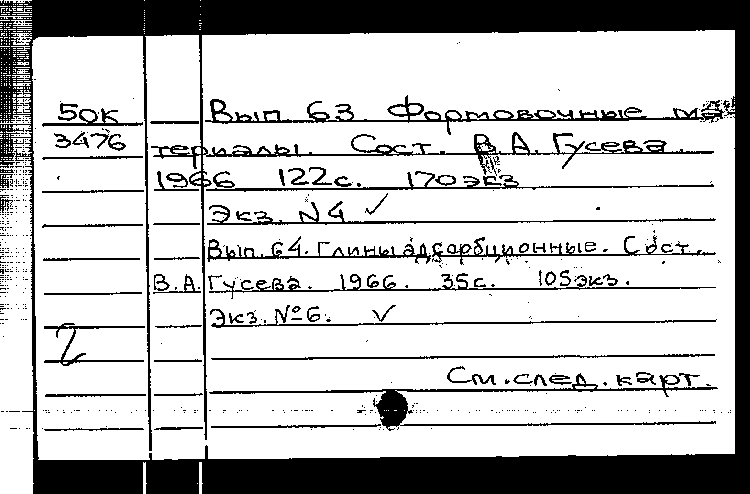 50к Вып. 63. Формовочные ма-
3476 териалы. Сост. В.А. Гусева.
1966 122с. 170экз
Экз. N4 ✓
Вып. 64. Глины адсорбционные. Сост.
В.А. Гусева. 1966. 35с. 105экз.
Экз. №6. ✓
2
См. след. карт.